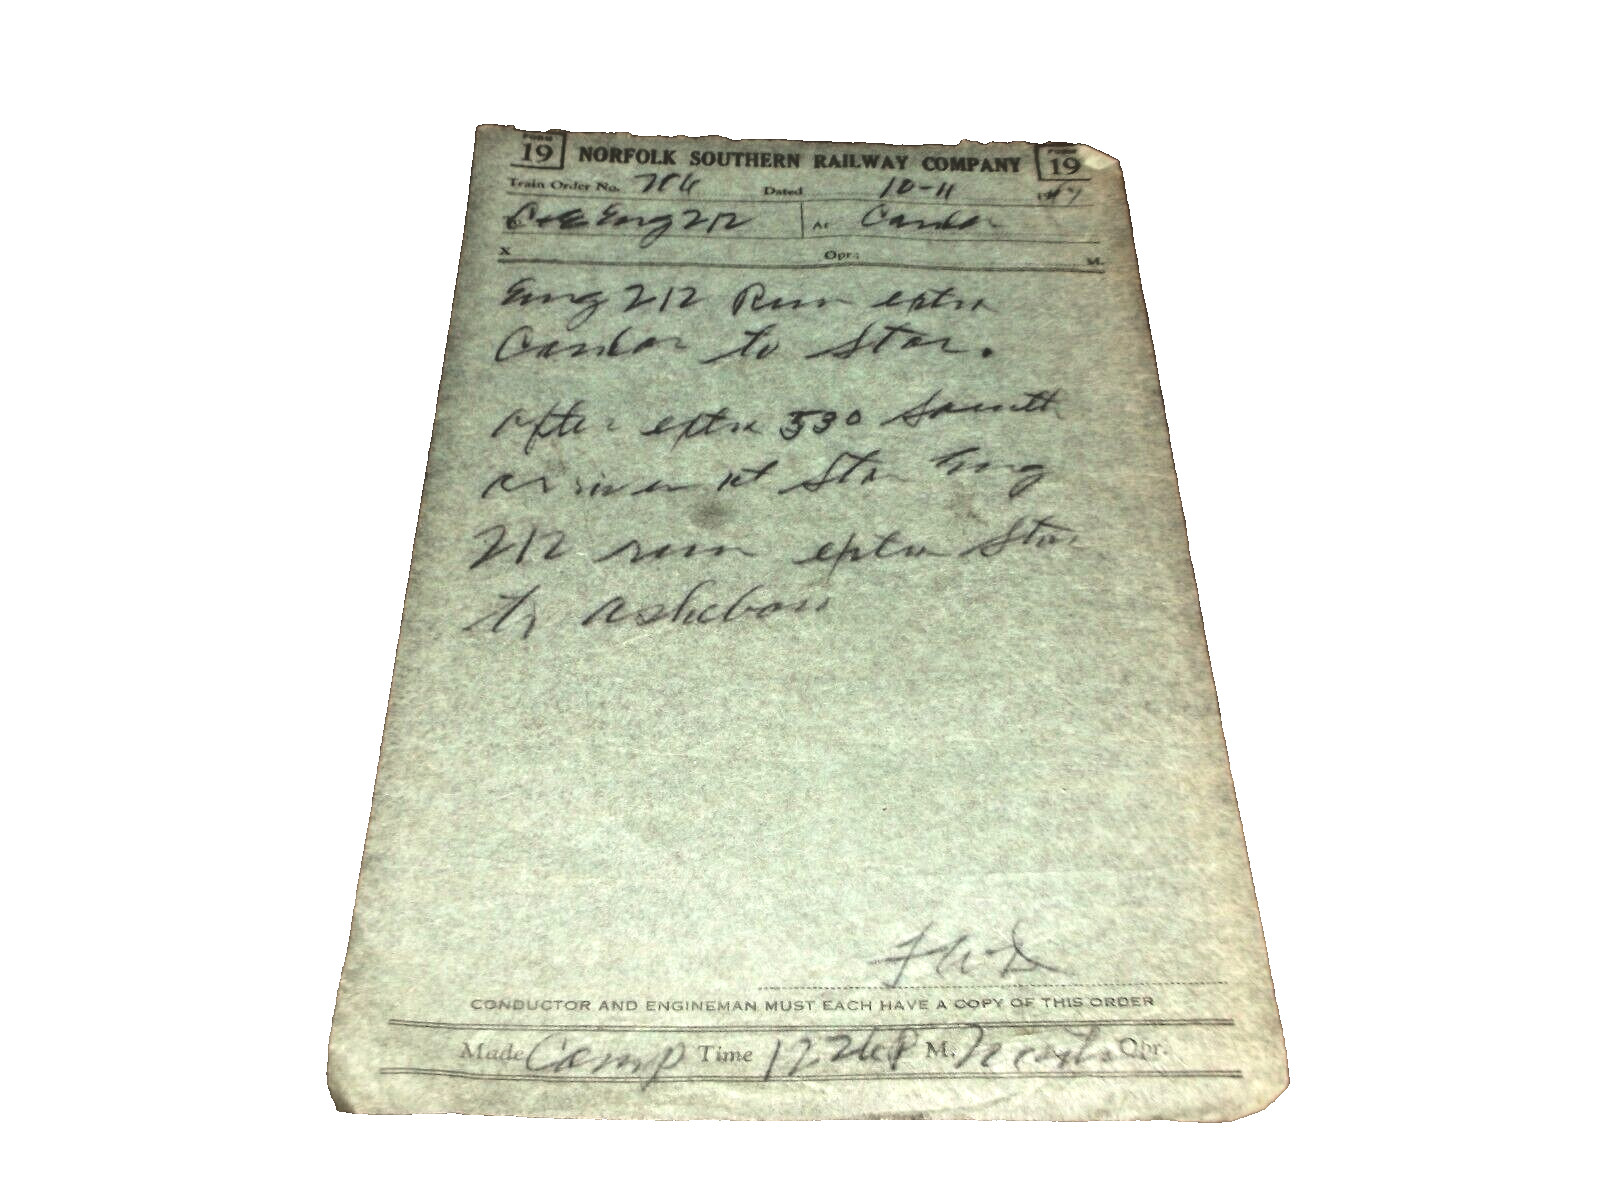 FORM 19 NORFOLK SOUTHERN RAILWAY COMPANY FORM 19
Train Order No. 706 Dated 10-11 1947
C&E Eng 212 At Candor
X Opr.; M.
Eng 212 Run extra
Candor to Star.
After extra 530 South
arrives at Star Eng
212 run extra Star
to Asheboro
FWD
CONDUCTOR AND ENGINEMAN MUST EACH HAVE A COPY OF THIS ORDER
Made Comp Time 1226P M. Opr.